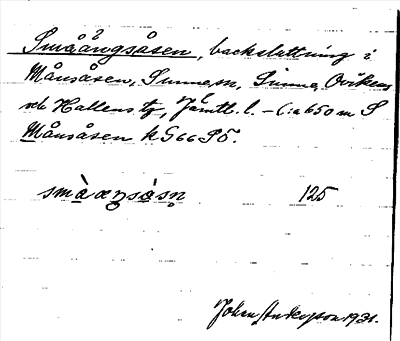 Småängsåsen, backsluttning i
Månsåsen, Sunne sn, Sunne, Ovikens
och Hallens tg, Jämtl. l. – C:a 650 m S
Månsåsen k G 66 Pö.
125
Johan Anderson 1931.